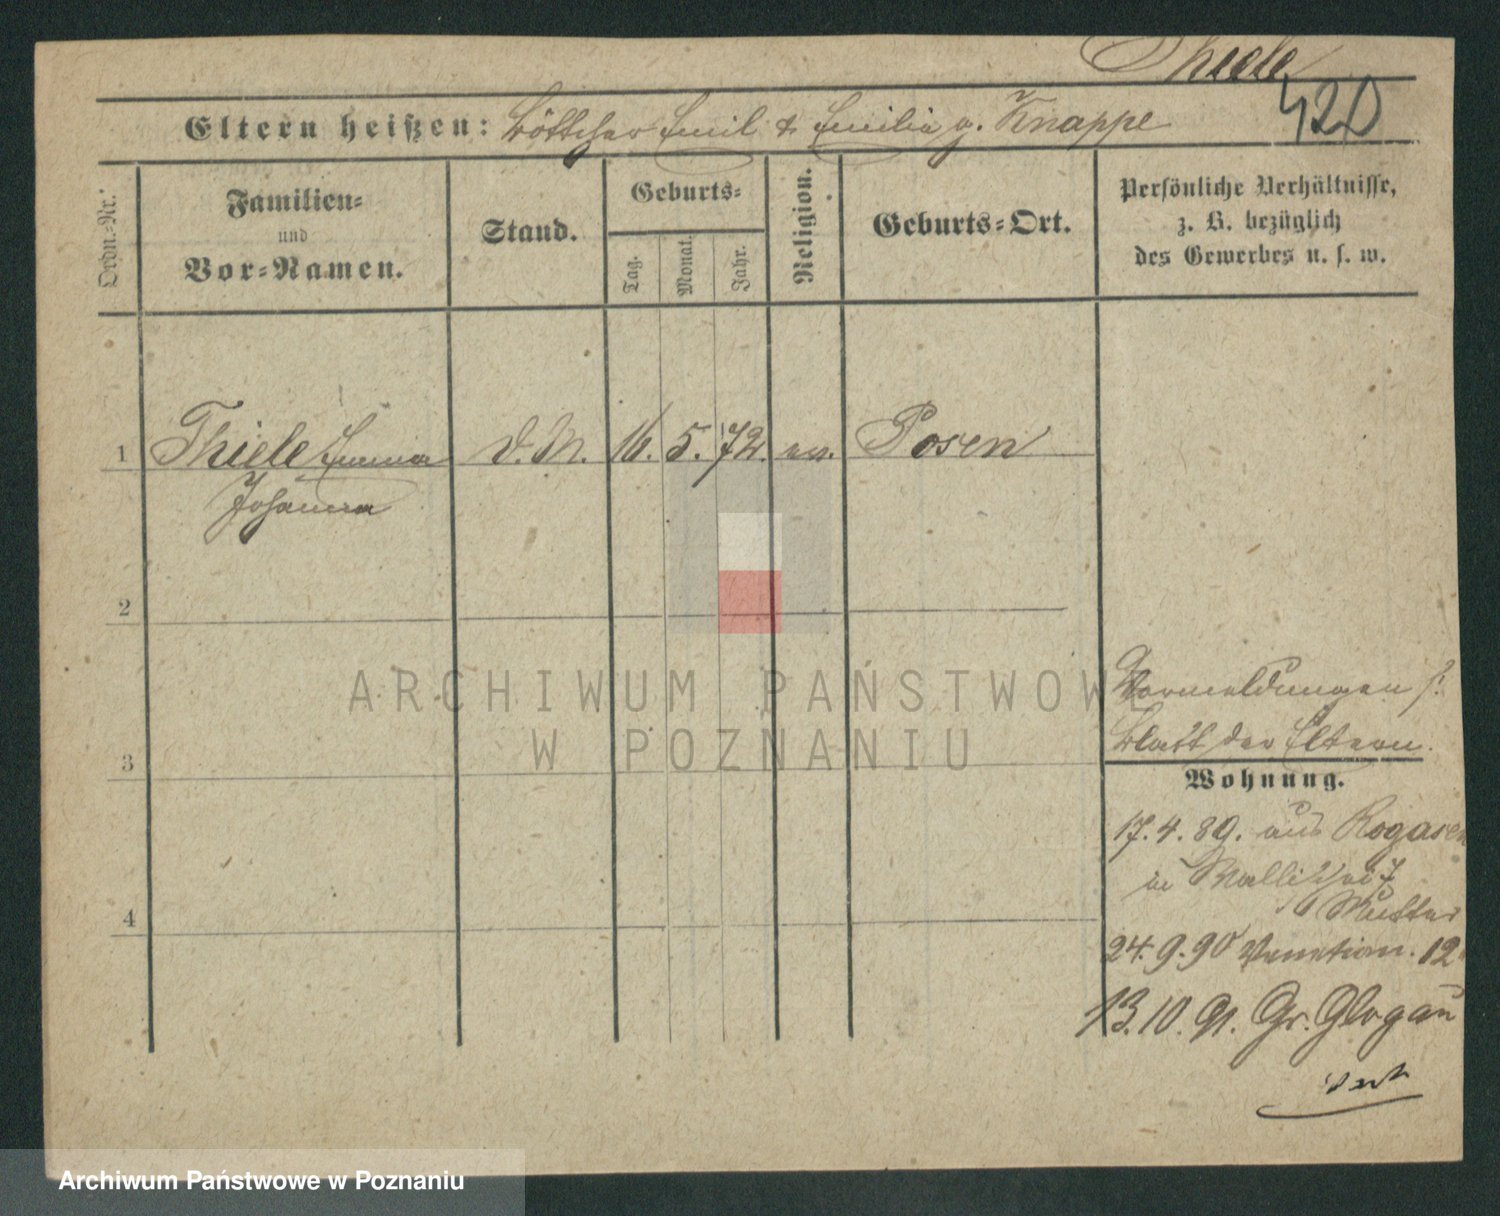 Thiele
420
Eltern heißen: Böttcher Emil & Emilie g. Knappe
Ordn.-Nr.
Familien-
und
Vor-Namen.
Stand.
Geburts-
Tag.
Monat.
Jahr.
Religion.
Geburts-Ort.
Persönliche Verhältnisse,
z. B. bezüglich
des Gewerbes u. s. w.
1 Thiele Emma D. M. 16. 5. 72. ev. Posen
Johanna
2
3
4
ARCHIWUM PAŃSTWOWE
W POZNANIU
Vormeldungen s.
Blatt der Eltern.
Wohnung.
17. 4. 89. aus Rogasen
in Wallischei 7
Mutter
24. 9. 90 Venetian. 12
13. 10. 91. Gr. Glogau
Archiwum Państwowe w Poznaniu